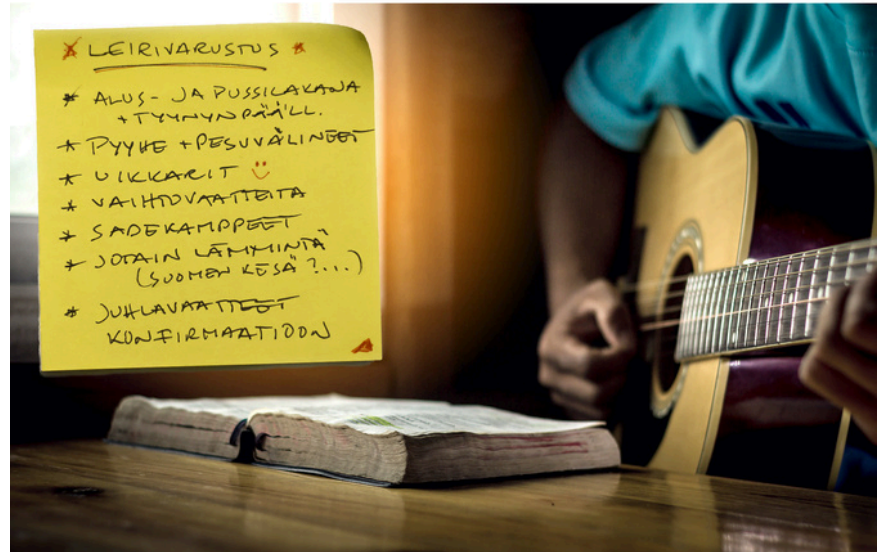 * LEIRIVARUSTUS *
* ALUS- JA PUSSILAKANA
+ TYYNYNPÄÄLL.
* PYYHE + PESUVÄLINEET
* UIKKARIT ☺
* VAIHTOVAATTEITA
* SADEKAMPPEET
* JOTAIN LÄMMINTÄ
(SUOMEN KESÄ ?...)
* JUHLAVAATTEET
KONFIRMAATIOON